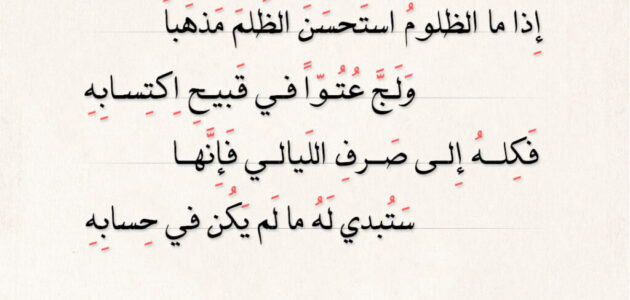 إِذا ما الظَلومُ استَحسَنَ الظُلمَ مَذهَباً
وَلَجَّ عُتُوّاً في قَبيحِ اِكتِسابِهِ
فَكِلهُ إِلى صَرفِ اللَيالي فَإِنَّها
سَتُبدي لَهُ ما لَم يَكُن في حِسابِهِ